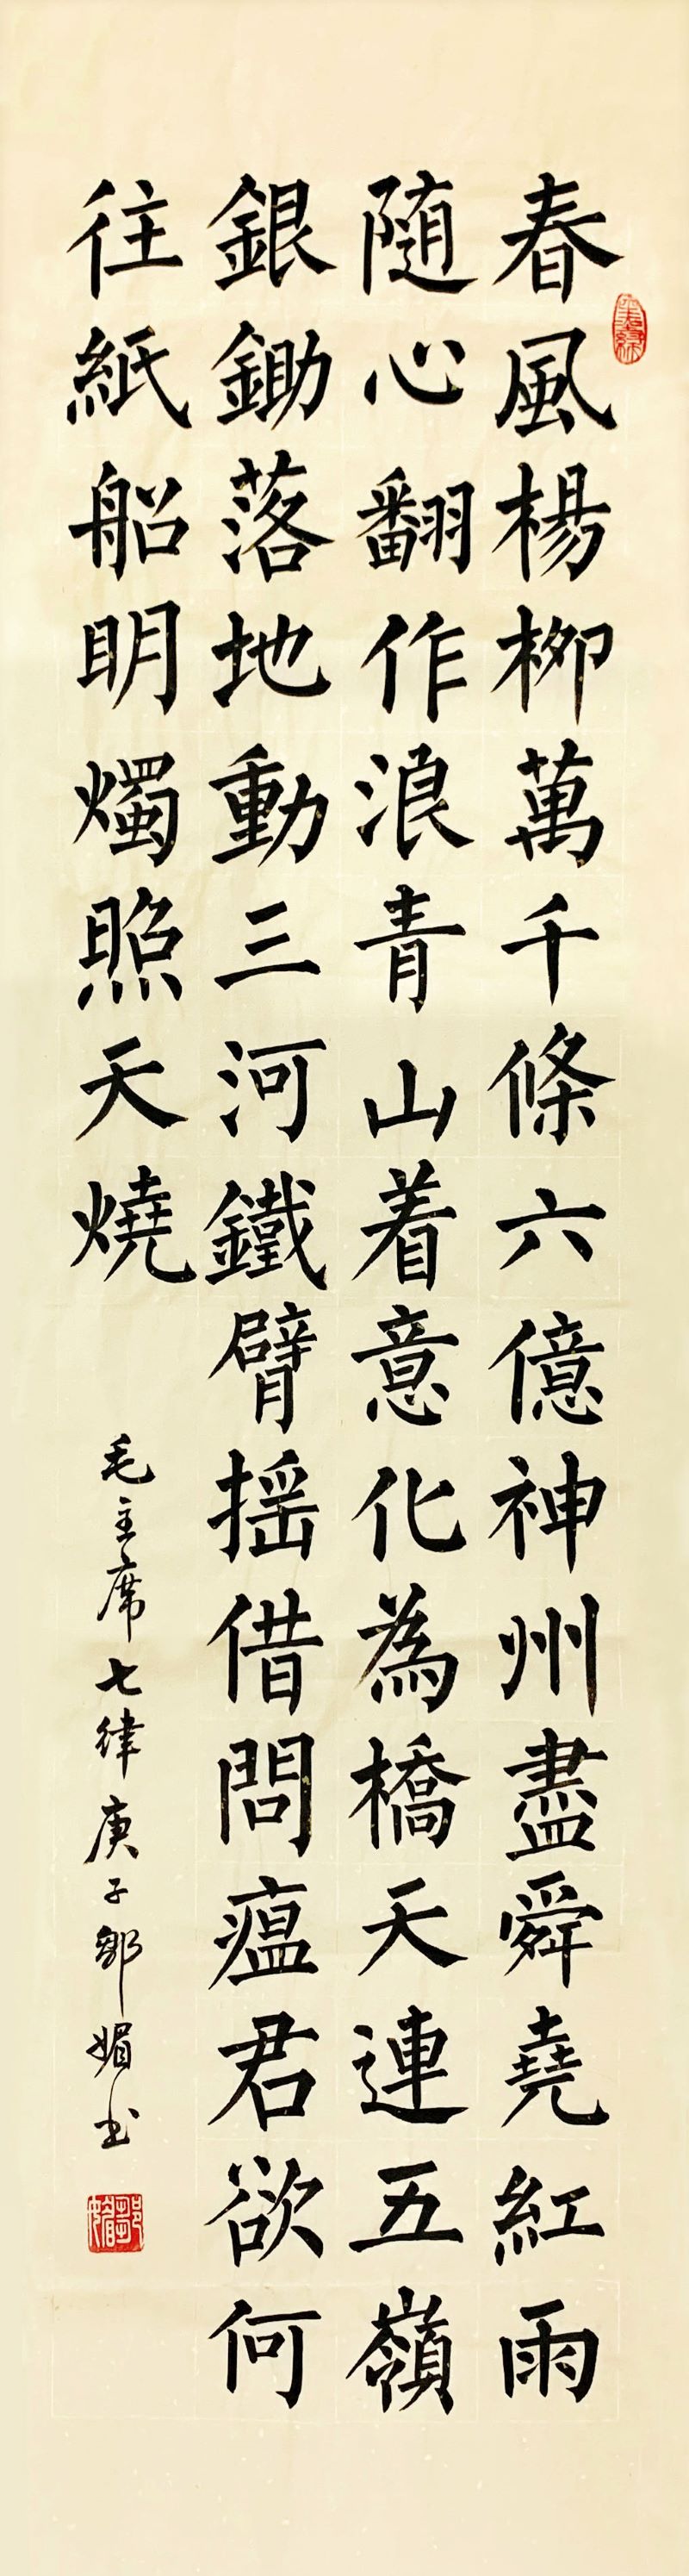 春風楊柳萬千條六億神州盡舜堯紅雨
随心翻作浪青山着意化為橋天連五嶺
銀鋤落地動三河鐵臂摇借問瘟君欲何
往紙船明燭照天燒
毛主席七律庚子鄒媚书